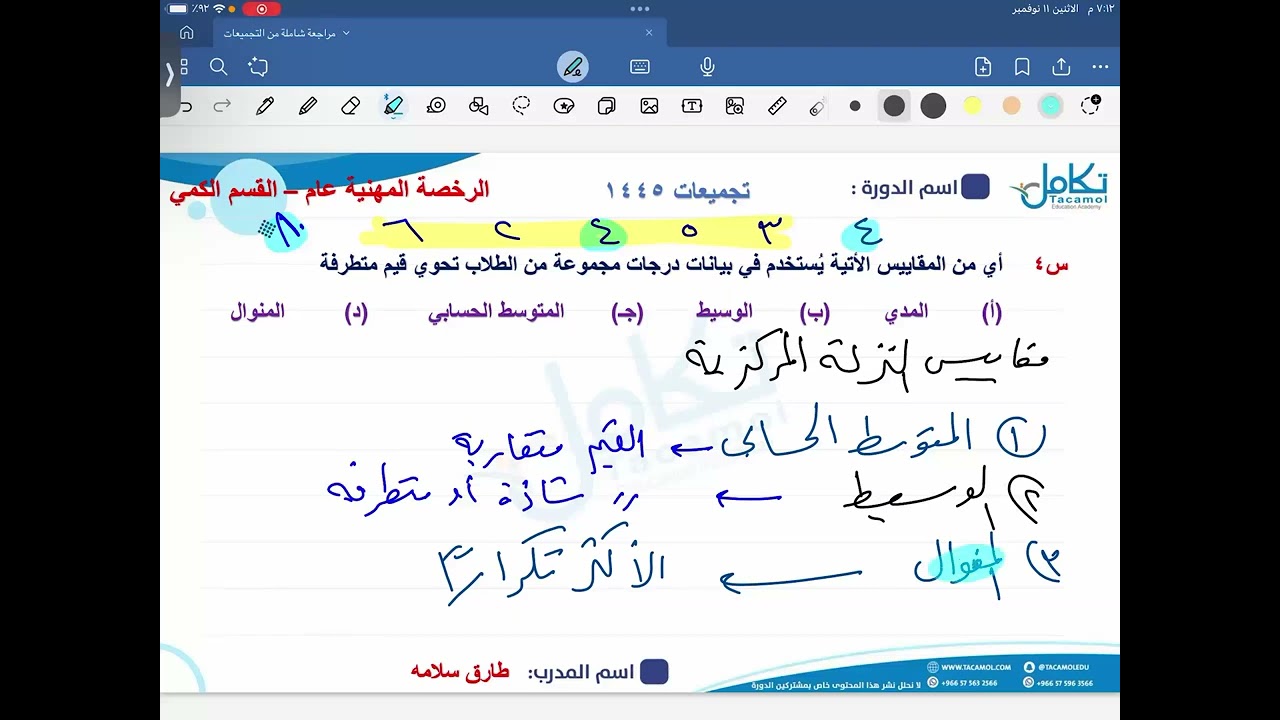 ٧:١٢ م الاثنين ١١ نوفمبر
٩٢٪
مراجعة شاملة من التجميعات
تكامل
Tacamol
Education Academy
اسم الدورة :
تجميعات ١٤٤٥
الرخصة المهنية عام – القسم الكمي
٤ ٣ ٥ ٤ ٢ ٦ ٨٠
س٤ أي من المقاييس الأتية يُستخدم في بيانات درجات مجموعة من الطلاب تحوي قيم متطرفة
(أ) المدي (ب) الوسيط (جـ) المتوسط الحسابي (د) المنوال
مقاييس النزعة المركزية
١) المتوسط الحسابي ← القيم متقاربة
٢) الوسيط ← ,, شاذة أو متطرفة
٣) المنوال ← الأكثر تكرارًا
تكامل
Tacamol
اسم المدرب: طارق سلامه
WWW.TACAMOL.COM
@TACAMOLEDU
+966 57 563 2566
+966 57 596 3566
لا نحلل نشر هذا المحتوى خاص بمشتركين الدورة